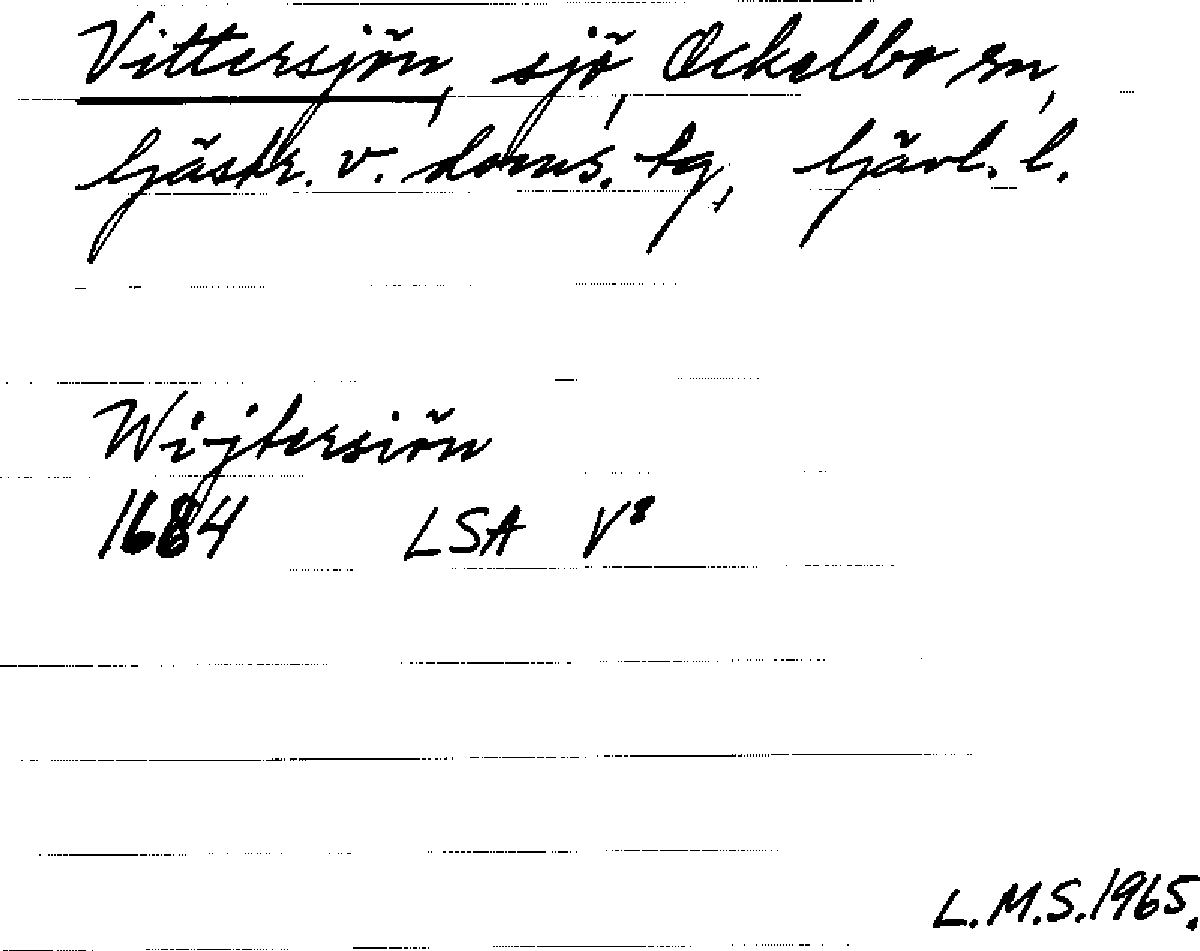 Vittersjön, sjö, Ockelbo sn,
Gästr. v. doms. tg, Gävl. l.
Wijtersiön
1684 LSA V⁸
L.M.S. 1965.